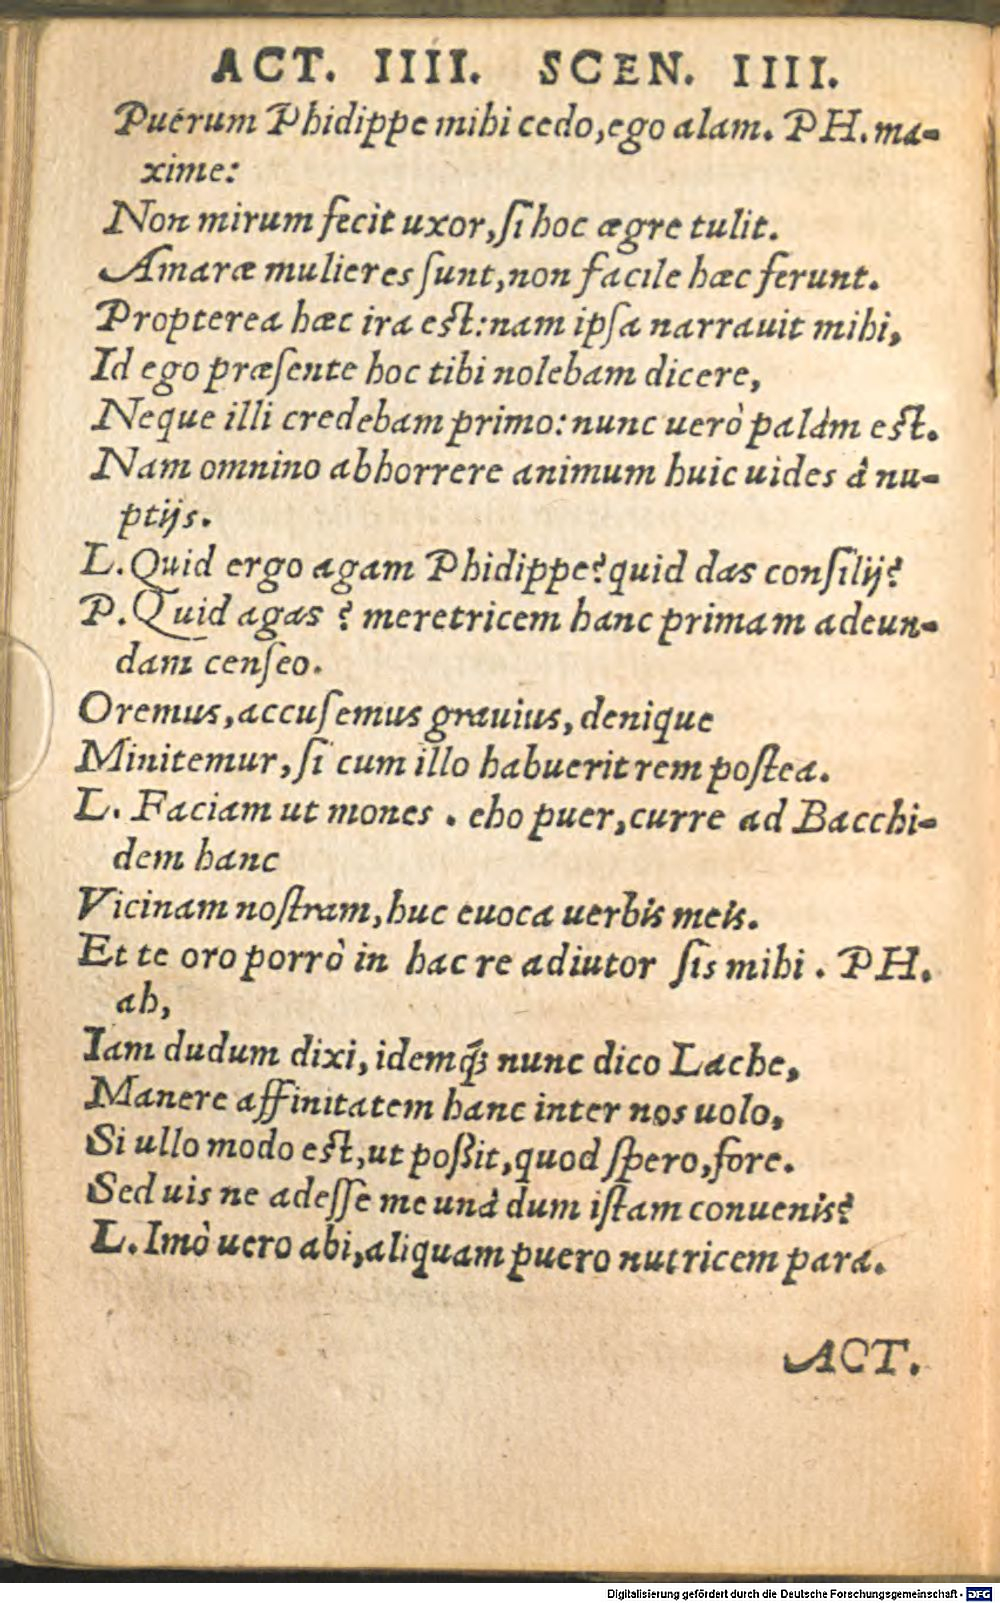 ACT. IIII. SCEN. IIII.
Puerum Phidippe mihi cedo, ego alam. PH. ma-
xime:
Non mirum fecit uxor, ſi hoc ægre tulit.
Amaræ mulieres ſunt, non facile hæc ferunt.
Propterea hæc ira eſt: nam ipſa narrauit mihi,
Id ego præſente hoc tibi nolebam dicere,
Neque illi credebam primo: nunc uerò palàm eſt.
Nam omnino abhorrere animum huic uides à nu-
ptijs.
L. Quid ergo agam Phidippe? quid das conſilij?
P. Quid agas? meretricem hanc primam adeun-
dam cenſeo.
Oremus, accuſemus grauius, denique
Minitemur, ſi cum illo habuerit rem poſtea.
L. Faciam ut mones. eho puer, curre ad Bacchi-
dem hanc
Vicinam noſtram, huc euoca uerbis meis.
Et te oro porrò in hac re adiutor ſis mihi. PH.
ah,
Iam dudum dixi, idemq́; nunc dico Lache,
Manere affinitatem hanc inter nos uolo,
Si ullo modo eſt, ut poßit, quod ſpero, fore.
Sed uis ne adeſſe me unà dum iſtam conuenis?
L. Imò uero abi, aliquam puero nutricem para.
ACT.
Digitalisierung gefördert durch die Deutsche Forschungsgemeinschaft - DFG